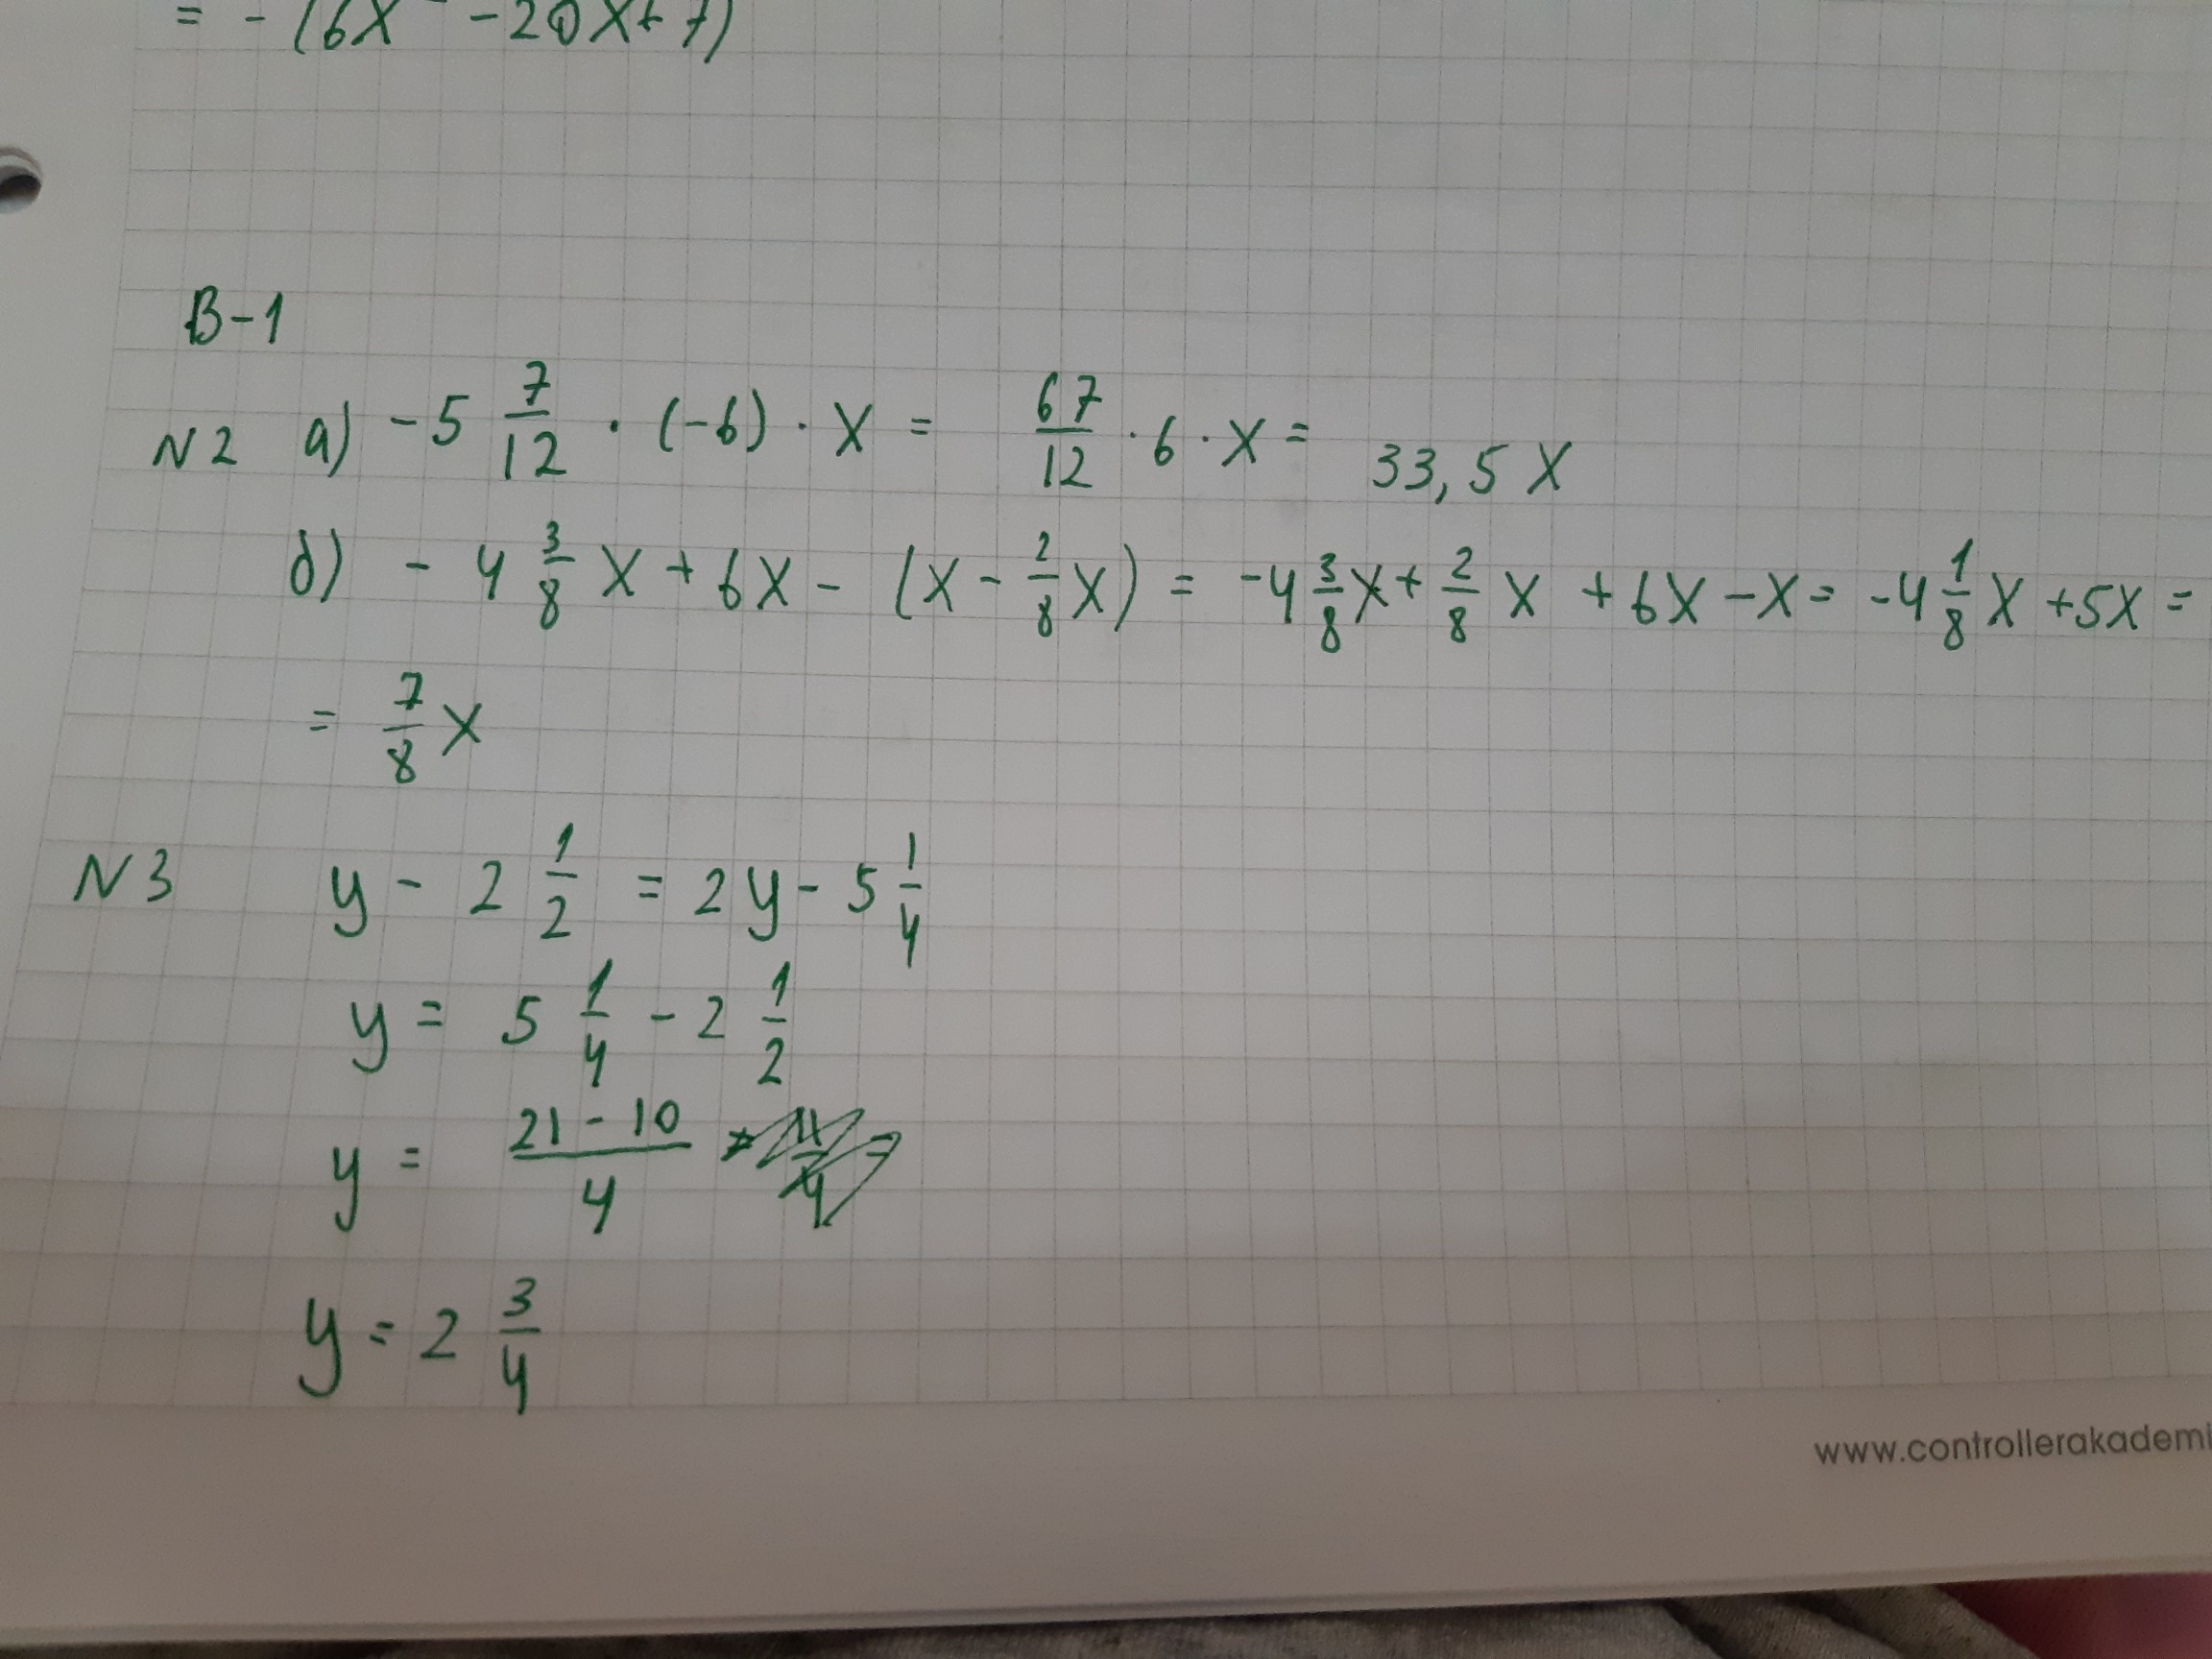 = - (6x - 20x + 7)
В-1
N2 а) -5 7/12 · (-6) · x = 67/12 · 6 · x = 33,5 x
б) - 4 3/8 x + 6x - (x - 2/8 x) = -4 3/8 x + 2/8 x + 6x - x = -4 1/8 x + 5x =
= 7/8 x
N3 y - 2 1/2 = 2y - 5 1/4
y = 5 1/4 - 2 1/2
y = 21 - 10/4
y = 2 3/4
www.controllerakademi